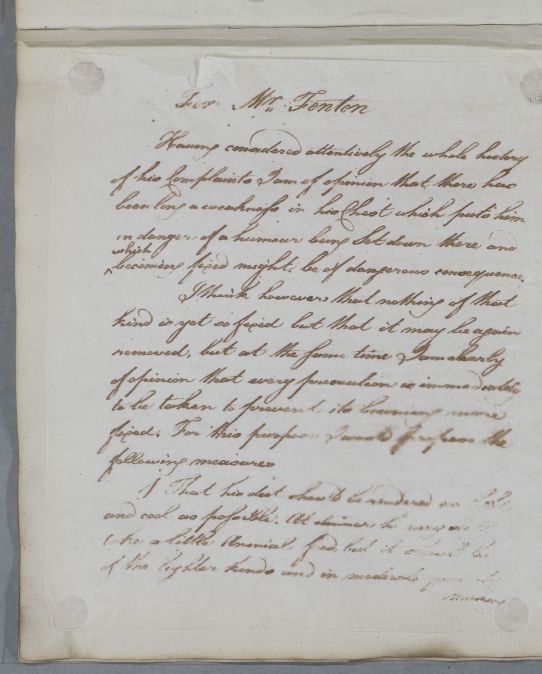 For Mr. Fenton
Having considered attentively the whole history
of his Complaints I am of opinion that there has
been long a weakness in his Chest which puts him
in danger of a humour being Set down there and
which
becoming fixed might be of dangerous consequence.
I think however that nothing of that
kind is yet so fixed but that it may be again
removed, but at the same time I am clearly
of opinion that every precaution is immediately
to be taken to prevent its becoming more
fixed. For this purpose I would propose the
following measures
1 That his diet should be rendered as
and cool as possible. At dinner he may
take a little Animal food, but it should be
of the lighter kinds and in moderate quantity